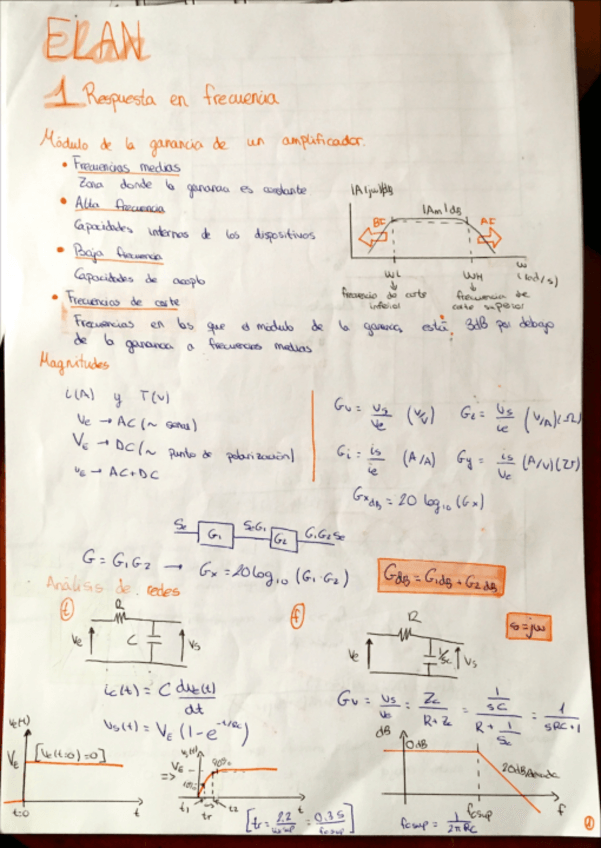 ELAN
1 Respuesta en frecuencia
Módulo de la ganancia de un amplificador.
• Frecuencias medias
Zona donde la ganancia es constante
• Alta frecuencia
Capacidades internas de los dispositivos
• Baja frecuencia
Capacidades de acoplo
• Frecuencias de corte
Frecuencias en las que el módulo de la ganancia está 3dB por debajo
de la ganancia a frecuencias medias
|A(jω)|dB
|Am|dB
BF
AF
ω
(rad/s)
ωL
ωH
frecuencia de corte
inferior
frecuencia de
corte superior
Magnitudes
i(A) y T(V)
Ve → AC (~ señal)
VE → DC (~ punto de polarización)
vE → AC+DC
Gv = vs/ve (V/V) Gz = vs/ie (V/A)(Ω)
Gi = is/ie (A/A) Gy = is/ve (A/V)(℧)
GxdB = 20 log10 (Gx)
Se G1 SeG1 G2 G1G2Se
G = G1G2 → Gx = 20log10 (G1·G2)
GdB = G1dB + G2dB
Análisis de redes
t
R
Ve
C
Vs
f
R
Ve
1/sC
Vs
s=jω
ic(t) = C dvc(t)/dt
vs(t) = VE (1-e^-t/RC)
Gv = vs/ve = Zc/(R+Zc) = (1/sC)/(R+1/sC) = 1/(sRC+1)
ve(t)
VE
[Vc(t=0)=0]
t=0
t
=>
vs(t)
VE
90%
10%
t1
tr
t2
t
[tr = 2.2/ωcsup = 0.35/fcsup]
dB
0dB
20dB/decada
f
fcsup
fcsup = 1/2πRC
1